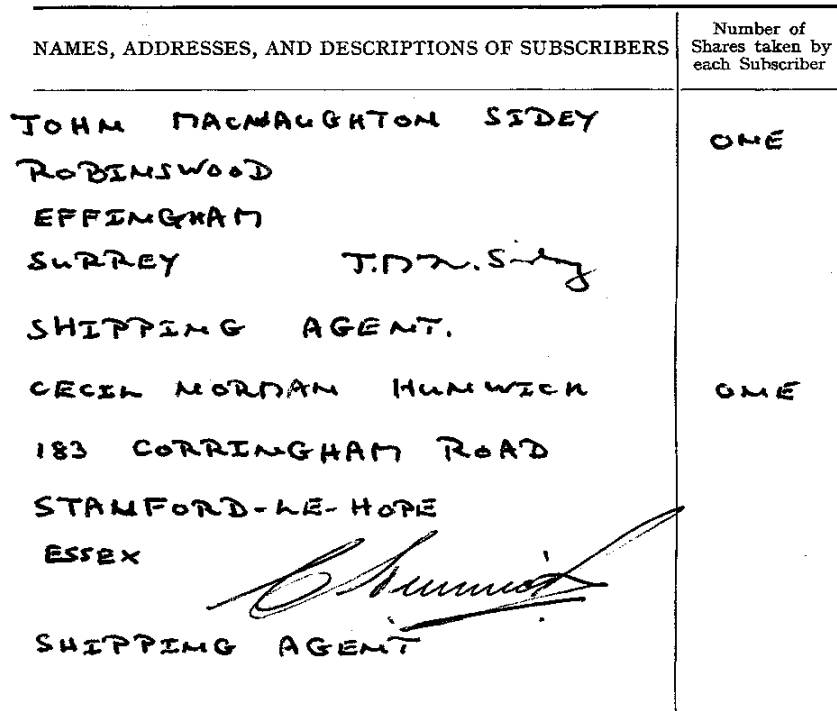 NAMES, ADDRESSES, AND DESCRIPTIONS OF SUBSCRIBERS
Number of
Shares taken by
each Subscriber
JOHN MACNAUGHTON SIDEY
ONE
ROBINSWOOD
EFFINGHAM
SURREY J.M.N. Sidey
SHIPPING AGENT.
CECIL NORMAN HUNWICK
ONE
183 CORRINGHAM ROAD
STANFORD-LE-HOPE
ESSEX
C Hunwick
SHIPPING AGENT